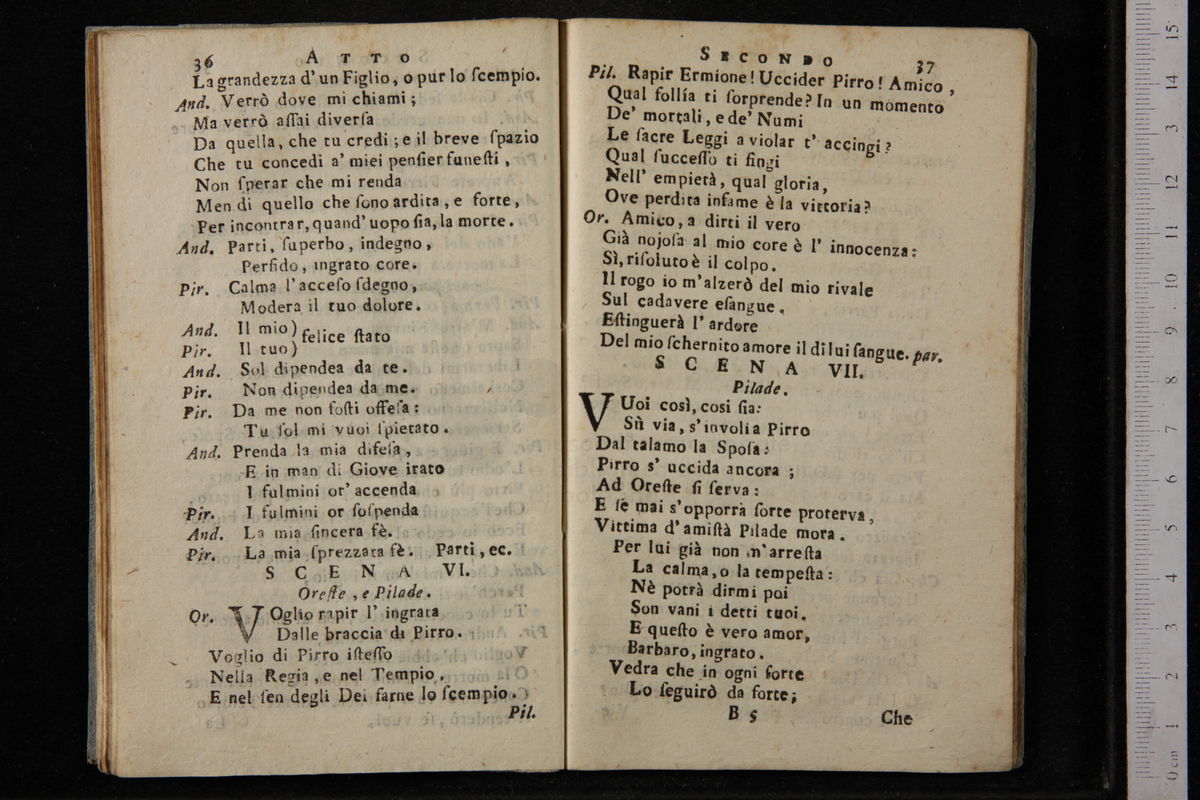 36 ATTO
La grandezza d'un Figlio, o pur lo ſcempio.
And. Verrò dove mi chiami;
Ma verrò aſſai diverſa
Da quella, che tu credi; e il breve ſpazio
Che tu concedi a' miei penſier funeſti,
Non ſperar che mi renda
Men di quello che ſono ardita, e forte,
Per incontrar, quand' uopo ſia, la morte.
And. Parti, ſuperbo, indegno,
Perfido, ingrato core.
Pir. Calma l'acceſo ſdegno,
Modera il tuo dolore.
And. Il mio)
Pir. Il tuo) felice ſtato
And. Sol dipendea da te.
Pir. Non dipendea da me.
Pir. Da me non foſti offeſa:
Tu ſol mi vuoi ſpietato.
And. Prenda la mia difeſa,
E in man di Giove irato
I fulmini or' accenda
Pir. I fulmini or ſoſpenda
And. La mia ſincera fè.
Pir. La mia ſprezzata fè. Parti, ec.
SCENA VI.
Oreſte, e Pilade.
Or. VOglio rapir l' ingrata
Dalle braccia di Pirro.
Voglio di Pirro iſteſſo
Nella Regia, e nel Tempio,
E nel ſen degli Dei farne lo ſcempio.
Pil.
SECONDO 37
Pil. Rapir Ermione! Uccider Pirro! Amico,
Qual follía ti ſorprende? In un momento
De' mortali, e de' Numi
Le ſacre Leggi a violar t' accingi?
Qual ſucceſſo ti fingi
Nell' empietà, qual gloria,
Ove perdita infame è la vittoria?
Or. Amico, a dirti il vero
Già nojoſa al mio core è l' innocenza:
Sì, riſoluto è il colpo.
Il rogo io m'alzerò del mio rivale
Sul cadavere eſangue.
Eſtinguerà l' ardore
Del mio ſchernito amore il di lui ſangue. par.
SCENA VII.
Pilade.
VUoi così, cosi ſia:
Sù via, s'involi a Pirro
Dal talamo la Spoſa:
Pirro s' uccida ancora;
Ad Oreſte ſi ſerva:
E ſe mai s'opporrà ſorte proterva,
Vittima d'amiſtà Pilade mora.
Per lui già non m'arreſta
La calma, o la tempeſta:
Nè potrà dirmi poi
Son vani i detti tuoi.
E queſto è vero amor,
Barbaro, ingrato.
Vedra che in ogni ſorte
Lo ſeguirò da forte;
B 5 Che
0 cm 1 2 3 4 5 6 7 8 9 10 11 12 13 14 15